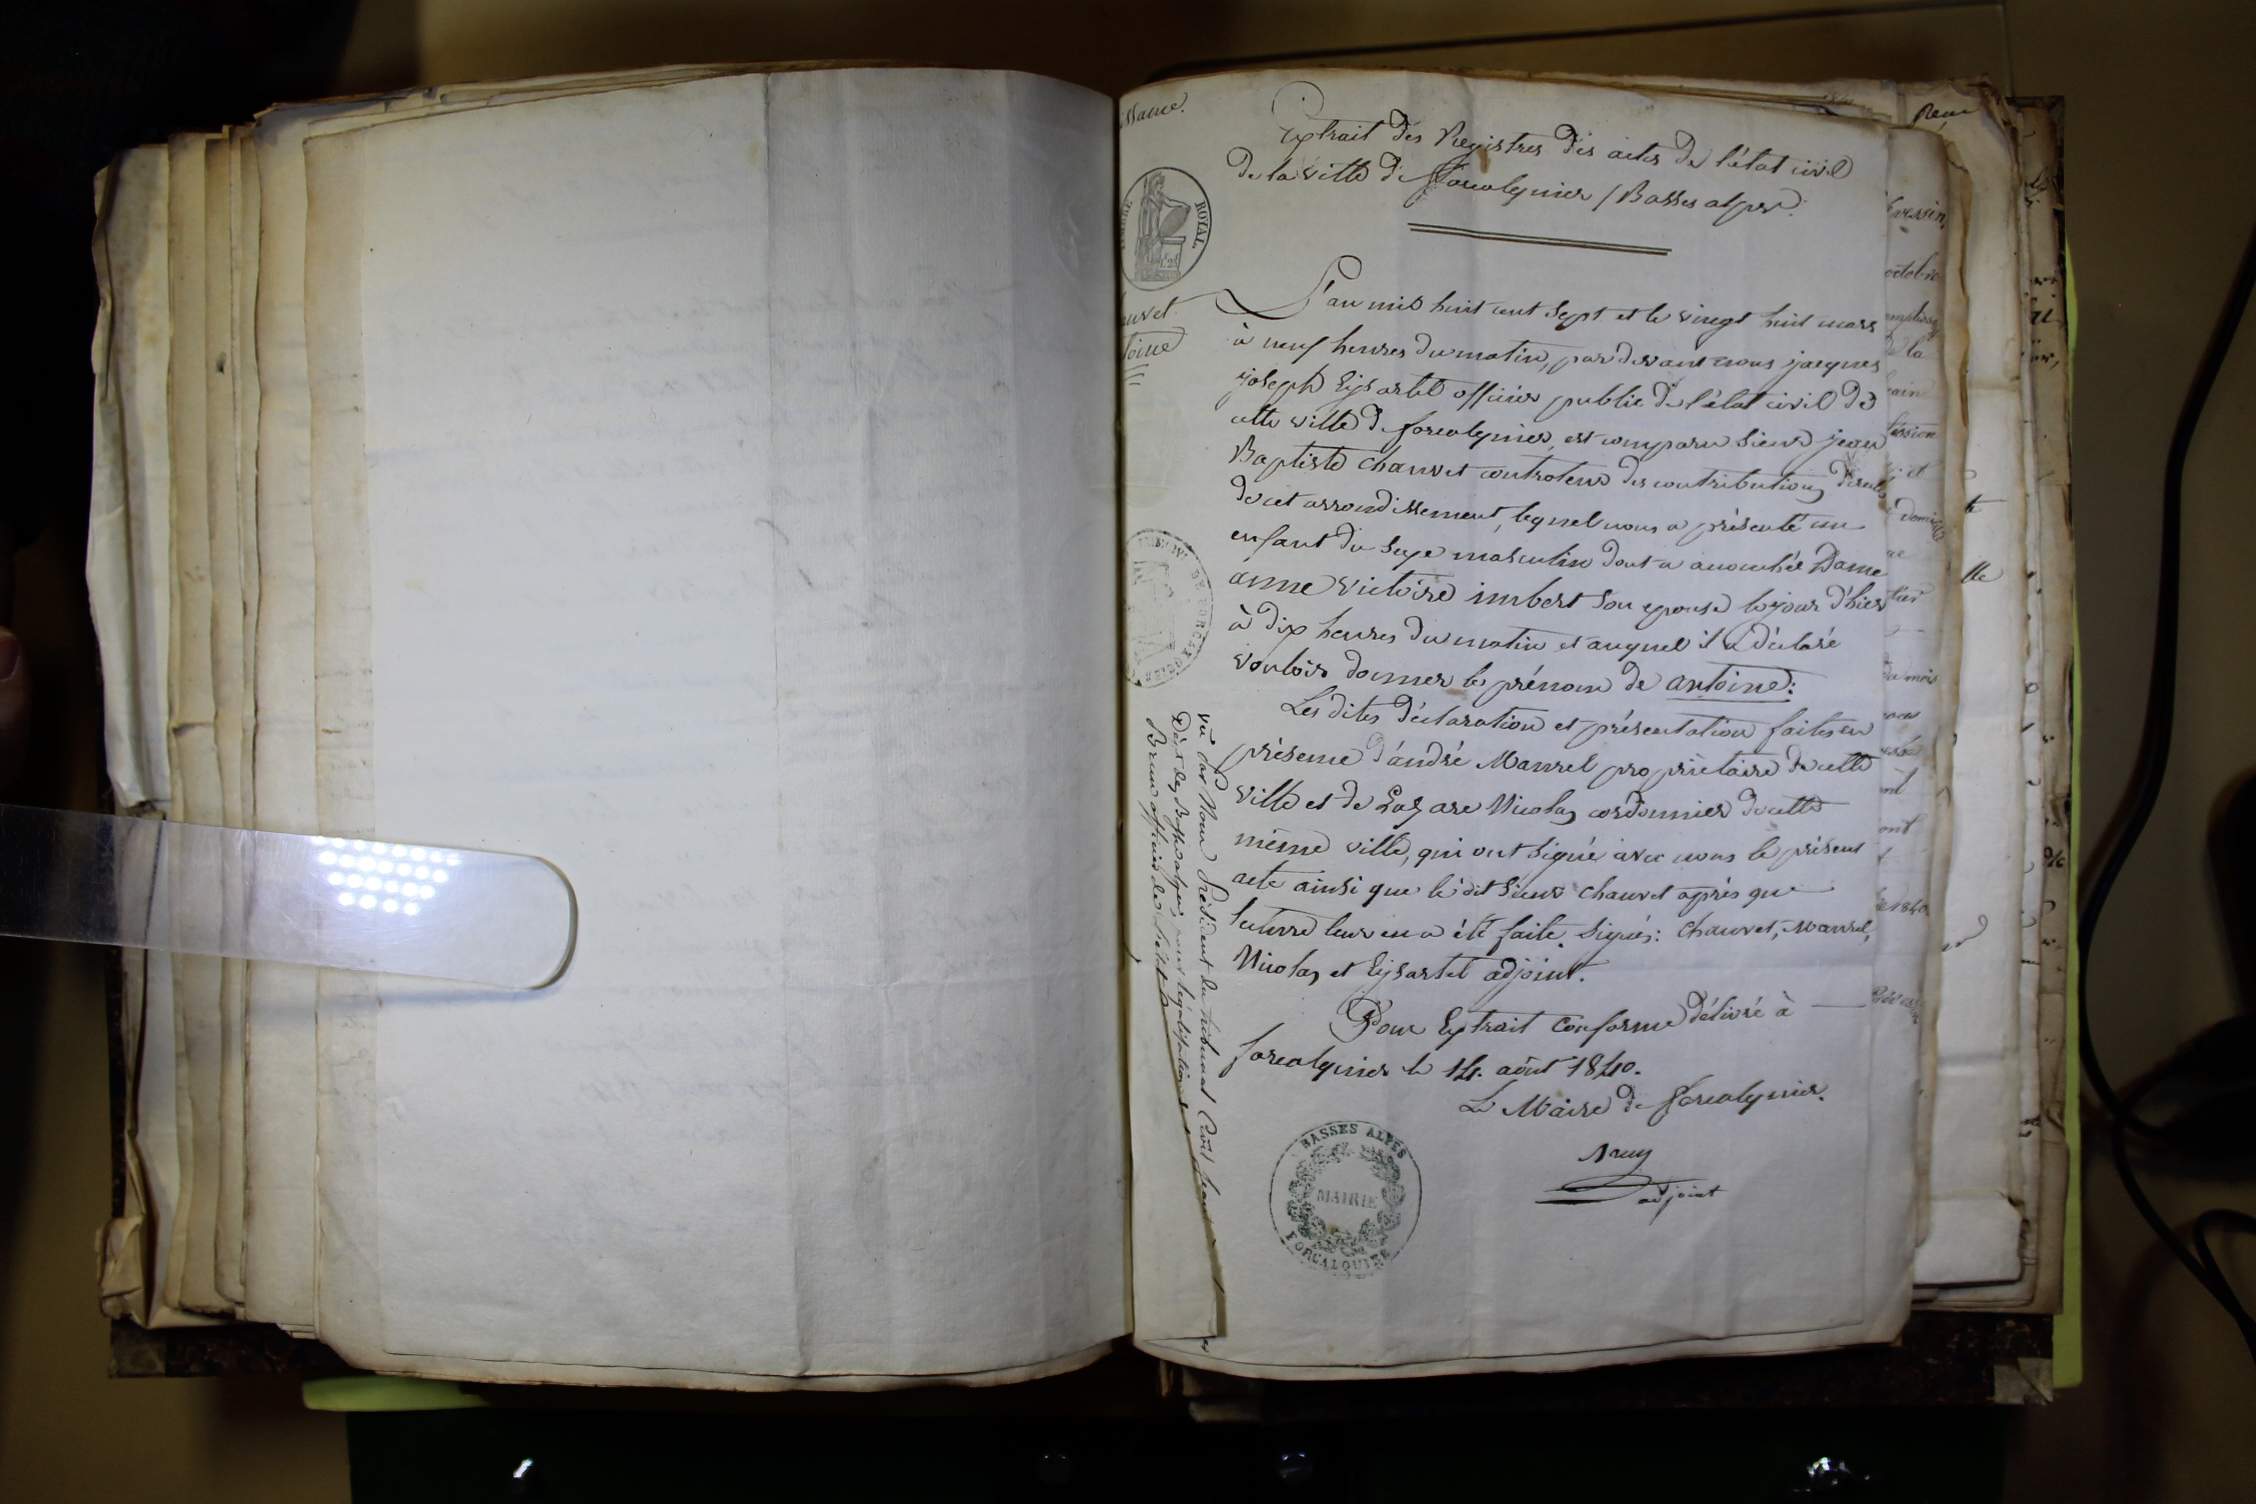 Extrait des Registres des actes de l'état civil
de la ville de forcalquier / Basses alpes.
TIMBRE ROYAL
L'an mil huit cent sept et le vingt huit mars
à neuf heures du matin, par devant nous jacques
joseph Eysartel officier public de l'état civil de
cette ville de forcalquier, est comparu sieur jean
Baptiste Chauvet controleur des contributions directes
de cet arrondissement, lequel nous a présenté un
enfant du sexe masculin dont a accouchée Dame
anne Victoire imbert son epouse le jour d'hier
à dix heures du matin et auquel il a déclaré
vouloir donner le prénom de antoine:
Les dites déclaration et présentation faites en
présence d'andré Maurel propriétaire de cette
ville et de Lazare Nicolas cordonnier de cette
même ville, qui ont signé avec nous le présent
acte ainsi que le dit sieur Chauvet après que
lecture leur en a été faite. Signés: Chauvet, Maurel,
Nicolas et Eysartel adjoint.
Pour Extrait Conforme délivré à
forcalquier le 14 août 1840.
Le Maire de forcalquier.
adjoint
BASSES ALPES
MAIRIE
FORCALQUIER
uvet
toine
vu par Nous Président du tribunal Civil
pour légalisation
officier de l'état
octobre
de la
et
mois
1840